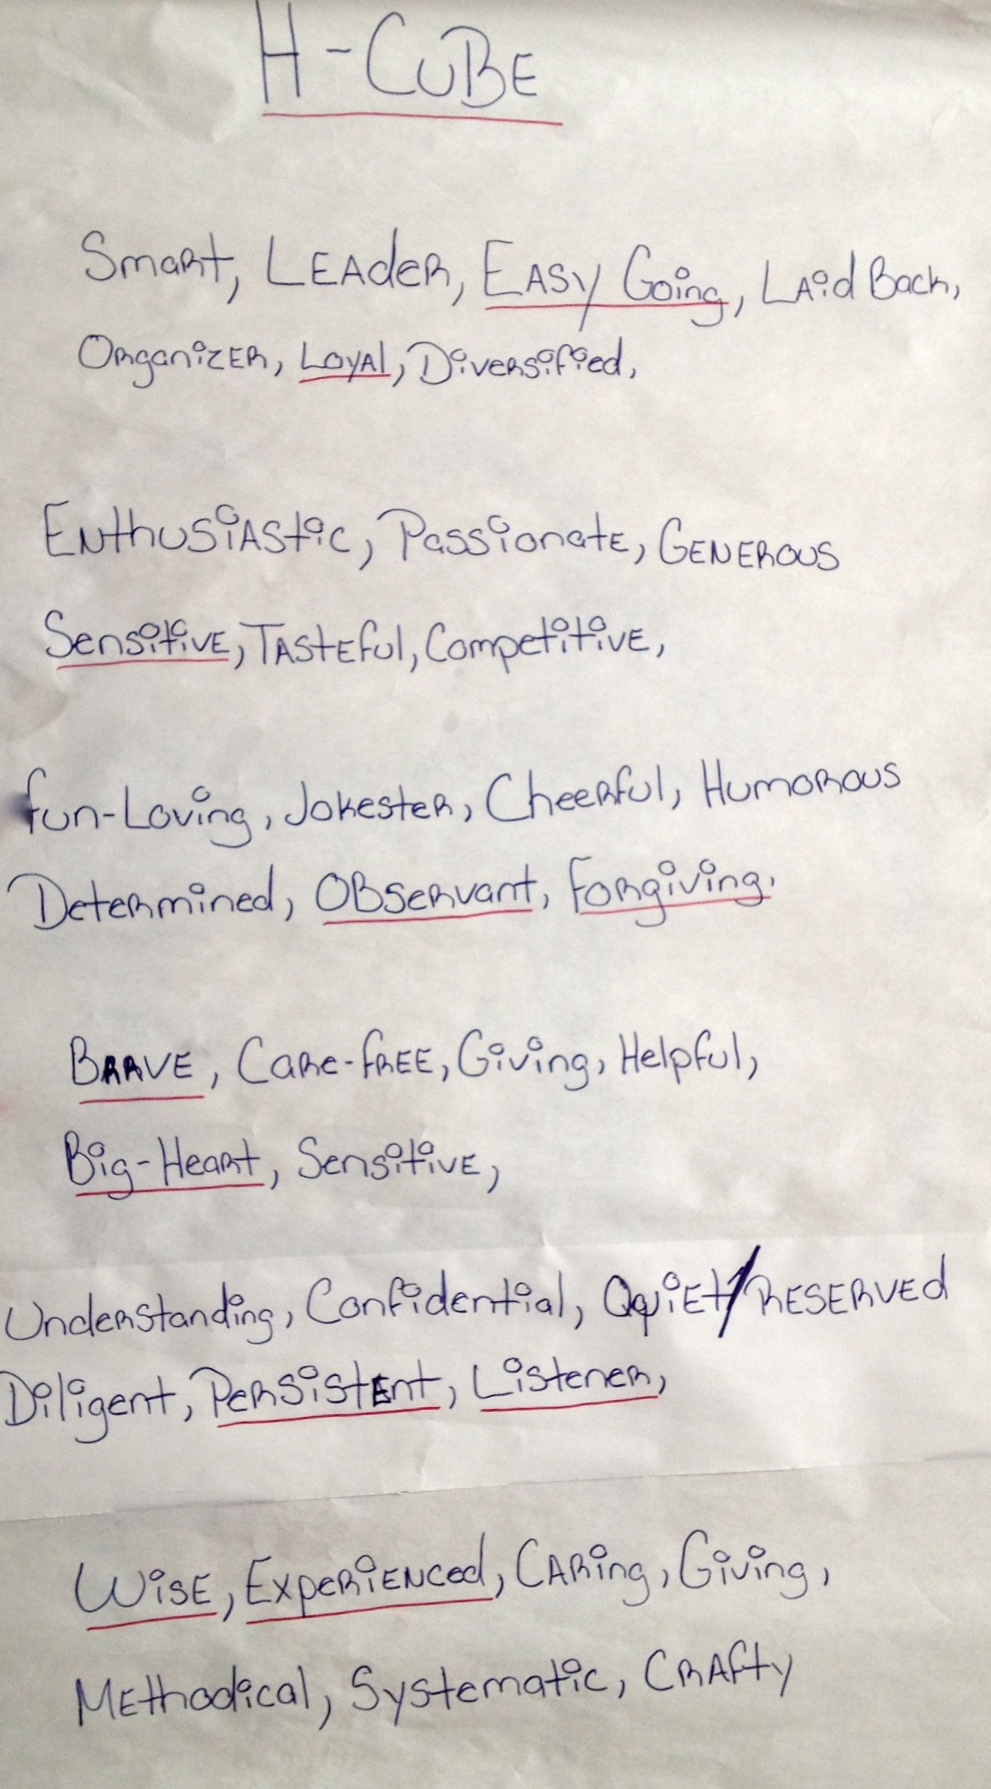 H-CUBE
Smart, LEAdER, EASY Going, LAid Back,
ORganizER, LOYAL, Diversified,
ENthusiAStic, PassionatE, GENEROUS
SensitivE, TAStEful, CompetitivE,
fun-Loving, Jokester, Cheerful, Humorous
Determined, OBservant, Forgiving,
BRAVE, CaRe-fREE, Giving, Helpful,
Big-Heart, SensitivE,
Understanding, Confidential, QuiEt/RESERVEd
Diligent, PersistEnt, Listener,
WiSE, ExpeRiENced, CARing, Giving,
MEthodical, Systematic, CRAfty